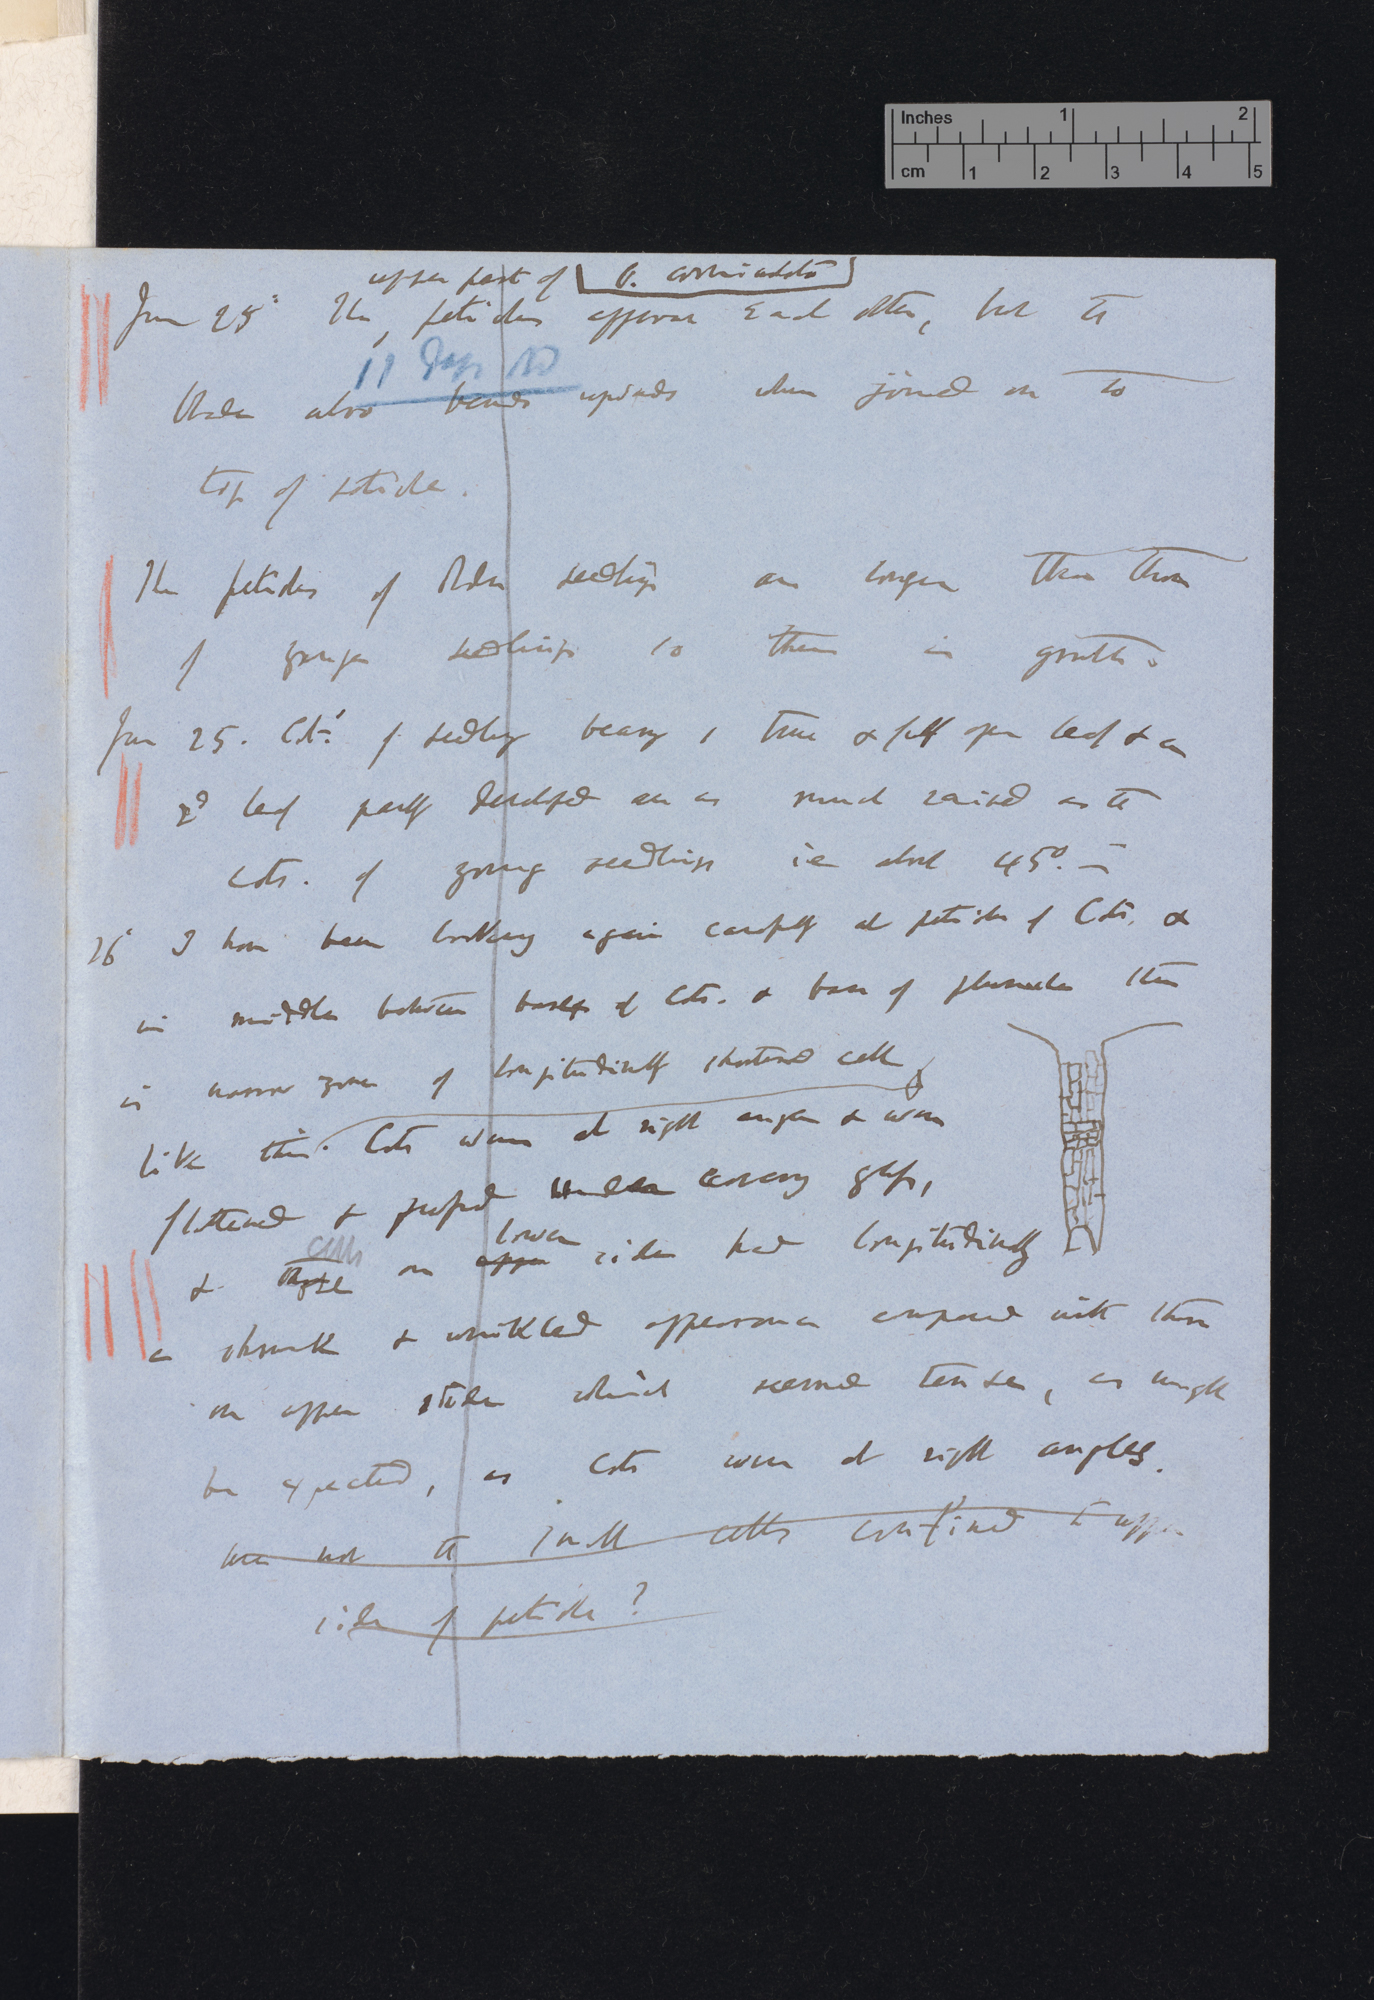 Inches 1 2
cm 1 2 3 4 5
upper part of O. corniculata
June 25: The petioles approach each other, but the
11 Days old
blade also bends upwards when joined on to
top of petiole.
The petioles of older seedlings are longer than those
of younger seedlings so there is growth.
June 25. Cots. of seedling bearing 1 true & full open leaf & a
2d leaf partly developed are as much raised as the
cots. of young seedlings ie about 45°. —
26 I have been looking again carefully at petioles of Cots. &
in middle between base of Cots. & base of there
is narrow zone of longitudinally shortened cells
like this. Cots were at right angles & were
flattened & under covering glass,
& those cells on upper lower side had longitudinally
a shrunk & wrinkled appearance compared with those
on upper side which seemed tense, as might
be expected, as Cots were at right angles.
Are not the small cells confined to upper
side of petiole?